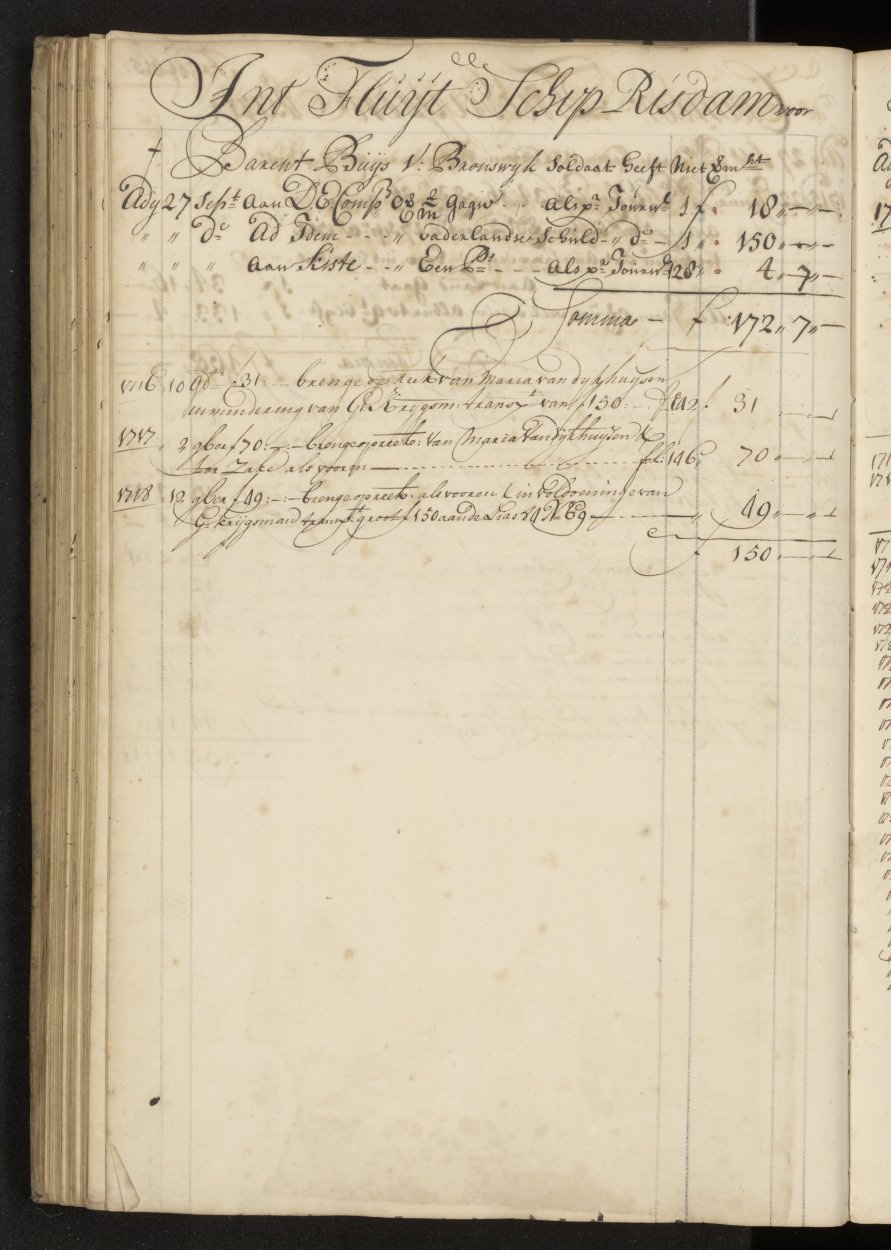 Int Fluÿt Schip Risdam voor
† Barent Buijs V: Bronswyk Soldaat heeft Niet
Ady 27 Sept aan D E Comp gagie als p Journl 1 f 18 „ — „ —
„ „ do Ad Idem „ vaderlandse Schuld „ do — 1 „ 150 „ — „ —
„ „ „ aan kiste „ Een als p Journl 28 „ 4 „ 7 „ —
Somma — f 172 „ 7 „ —
1716 10 f 31: brenge op reek van Maria van dykhuysen
in mindering van G: Krygsm: transpt van f 150: — 31
1717 2 9ber f 70 — brenge op reek: van Maria van dijkhuysen
ter Zake als vooren fol: 146 70 „ — „ —
1718 12 9ber f 49: — brenge op reek: als vooren in voldoeninge van
G: krijgsman transpt groot f 150 aan de Lias 49 „ — „ —
f 150 „ — „ —